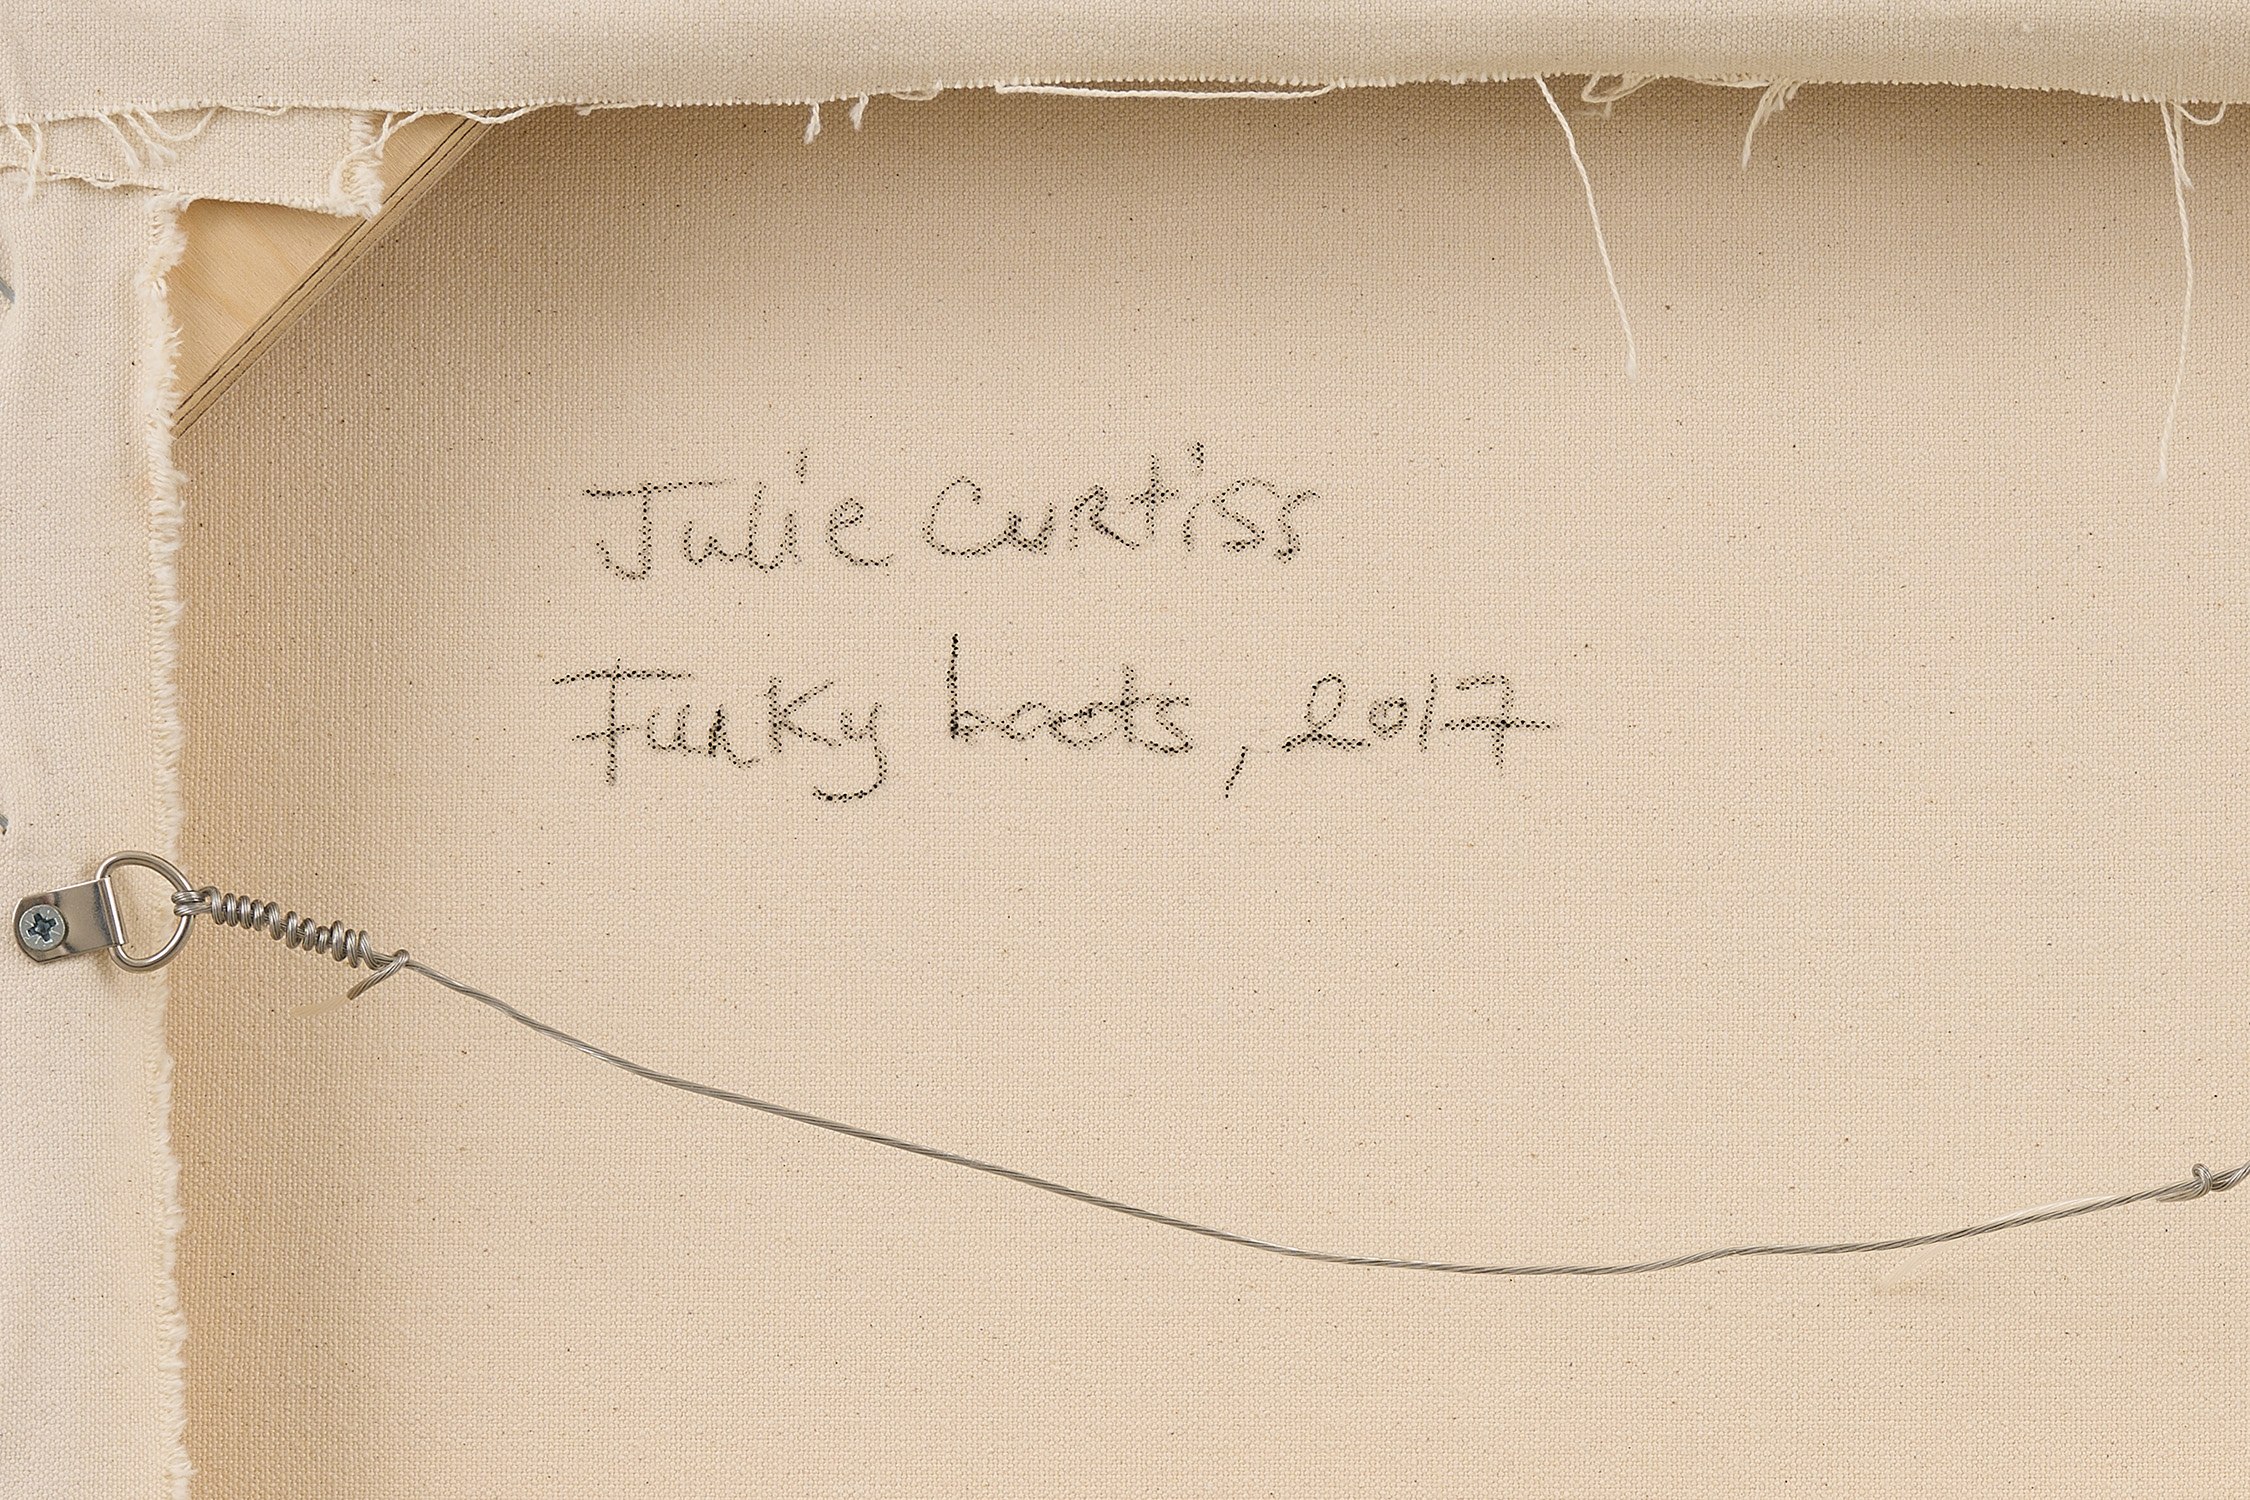 Julie Curtiss
Funky boots, 2017